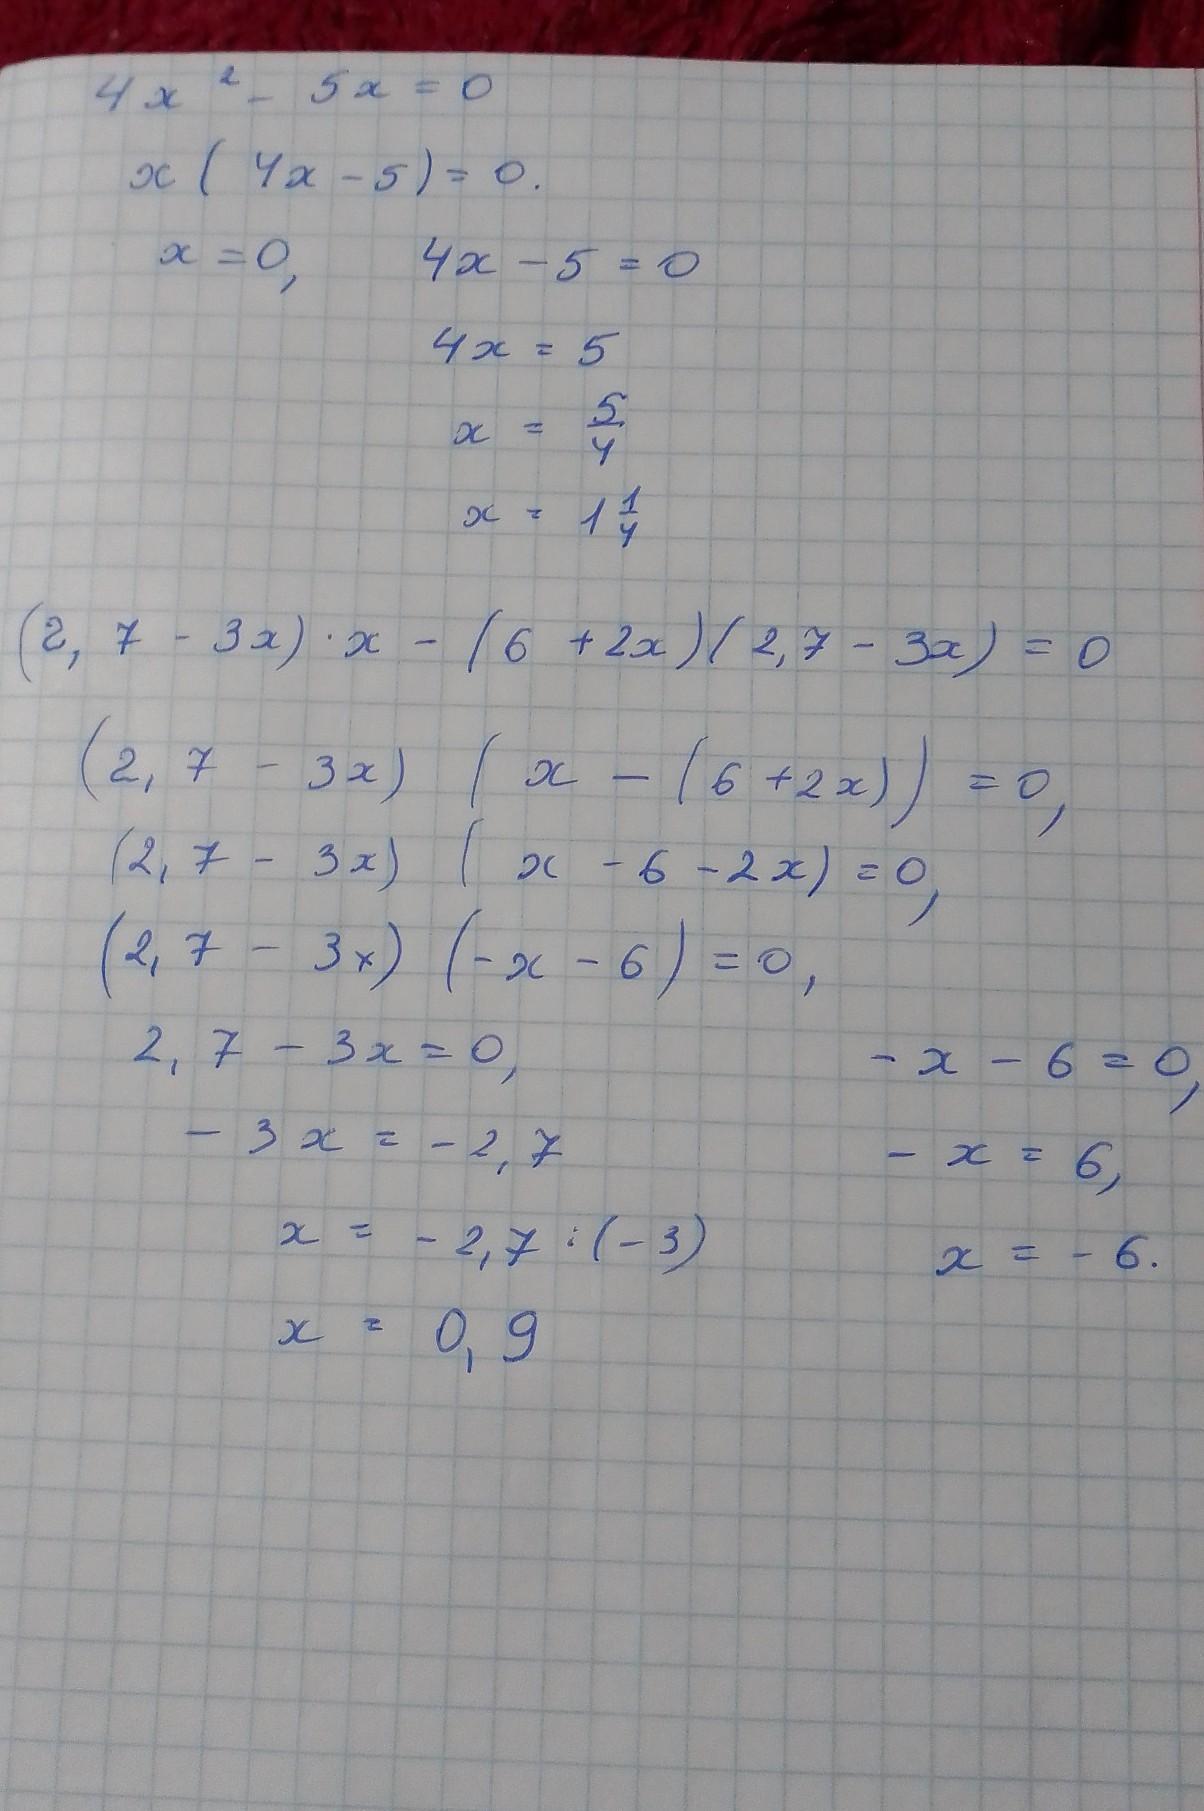 4x² - 5x = 0
x ( 4x - 5) = 0.
x = 0, 4x - 5 = 0
4x = 5
x = 5/4
x = 1 1/4
(2,7 - 3x) · x - (6 + 2x)(2,7 - 3x) = 0
(2,7 - 3x) ( x - (6 + 2x)) = 0,
(2,7 - 3x) ( x - 6 - 2x) = 0,
(2,7 - 3x) (-x - 6) = 0,
2,7 - 3x = 0, - x - 6 = 0,
- 3x = - 2,7 - x = 6,
x = - 2,7 : (-3) x = - 6.
x = 0,9